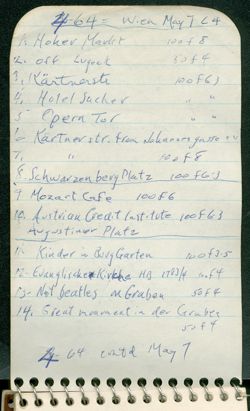 4 64 = Wien May 7 64
1. Hoher Markt 100 f 8
2. off Lugeck 50 f 4
3. Kärtnerstr 100 f 63
4. Hotel Sacher " "
5 Opern Tor " "
6 Kärtner str. from Johannesgasse " "
7. " 100 f 8
8. Schwarzenberg Platz 100 f 6.3
9 Mozart Cafe 100 f 6
10. Austrian Credit Institute 100 f 63
Augustiner Platz
11. Kinder in BurgGarten 100 f 3.5
12. Evanglische Kirche HB 1783/4 50 f 4
13. Not beatles on Graben 50 f 4
14. Great moment in der Graben
50 f 4
4 64 contd May 7